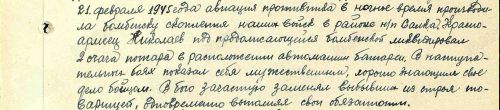 21. февраля 1945 года авиация противника в ночное время производи-
ла бомбежку скопления наших войск в районе н/п Валка, Красно-
армеец Николаев под продолжающейся бомбежкой ликвидировал
2 очага пожара в расположении автомашин батареи. В наступа-
тельных боях показал себя мужественным, хорошо знающим свое
дело бойцом. В бою зачастую заменял выбывших из строя то-
варищей, одновременно выполняя свои обязанности.